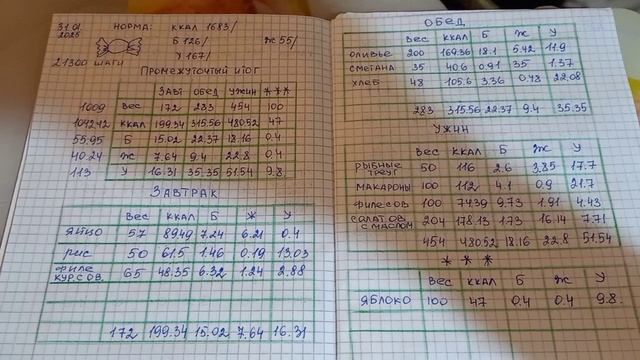 31.01
2025
НОРМА: ККАЛ 1683/
Б 126/ Ж 55/
У 167/
21300 ШАГИ
ПРОМЕЖУТОЧНЫЙ ИТОГ
ЗАВТ ОБЕД УЖИН ***
1009 ВЕС 172 283 454 100
1042.42 ККАЛ 199.34 315.56 480.52 47
55.95 Б 15.02 22.37 18.16 0.4
40.24 Ж 7.64 9.4 22.8 0.4
113 У 16.31 35.35 51.54 9.8
ЗАВТРАК
ВЕС ККАЛ Б Ж У
ЯЙЦО 57 89.49 7.24 6.21 0.4
РИС 50 61.5 1.46 0.19 13.03
ФИЛЕ КУР.СОВ. 65 48.35 6.32 1.24 2.88
172 199.34 15.02 7.64 16.31
ОБЕД
ВЕС ККАЛ Б Ж У
ОЛИВЬЕ 200 169.36 18.1 5.42 11.9
СМЕТАНА 35 40.6 0.91 35 1.37
ХЛЕБ 48 105.6 3.36 0.48 22.08
283 315.56 22.37 9.4 35.35
УЖИН
ВЕС ККАЛ Б Ж У
РЫБНЫЕ ТРЕУГ 50 116 2.6 3.85 17.7
МАКАРОНЫ 100 112 4.1 0.9 21.7
ФИЛЕ СОВ 100 74.39 9.73 1.91 4.43
САЛАТ ОВ. С МАСЛОМ 204 178.13 1.73 16.14 7.71
454 480.52 18.16 22.8 51.54
***
ВЕС ККАЛ Б Ж У
ЯБЛОКО 100 47 0.4 0.4 9.8